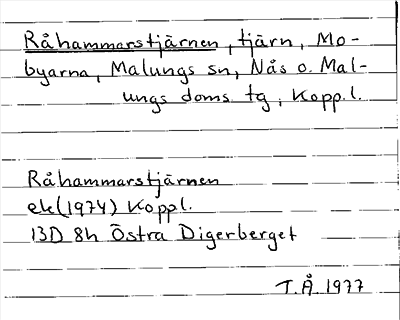 Råhammarstjärnen, tjärn, Mo-
byarna, Malungs sn, Nås o. Mal-
ungs doms tg, Kopp.l.
Råhammarstjärnen
ek(1974) Koppl.
13D 8h Östra Digerberget
T.Å 1977